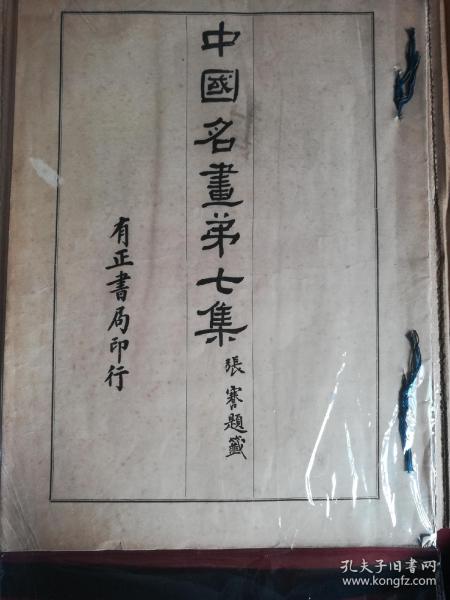 中國名畫第七集
張謇題籤
有正書局印行
孔夫子旧书网
www.kongfz.com